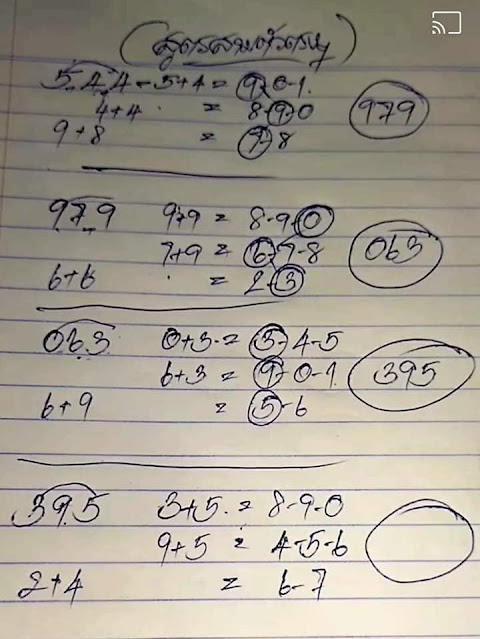 544 - 5+4 = 9-0-1. 979
4+4 = 8-9-0
9+8 = 7-8
979 9+9 = 8-9-0
7+9 = 6-7-8 063
6+6 = 2-3
063 0+3 = 3-4-5
6+3 = 9-0-1 395
6+9 = 5-6
395 3+5 = 8-9-0
9+5 = 4-5-6
2+4 = 6-7